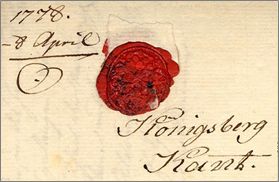 1778.
-8 April
Königsberg
Kant.